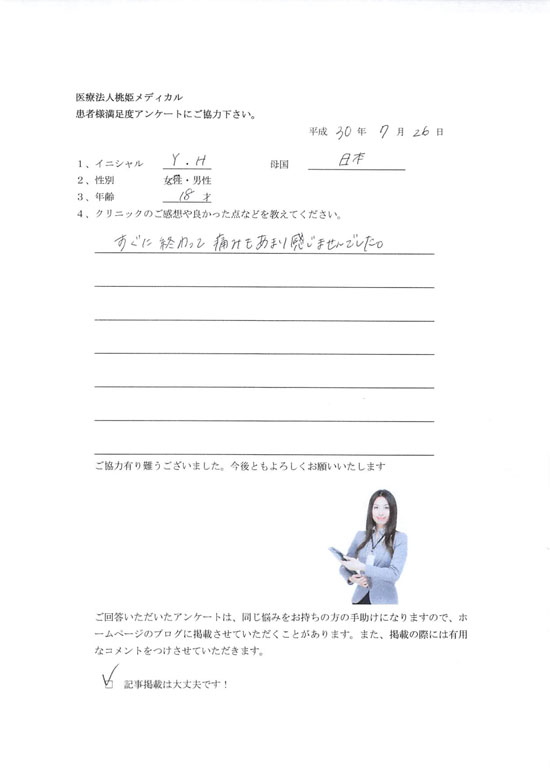 医療法人桃姫メディカル
患者様満足度アンケートにご協力下さい。
平成 30 年 7 月 26 日
1、イニシャル Y.H 母国 日本
2、性別 女性・男性
3、年齢 18 才
4、クリニックのご感想や良かった点などを教えてください。
すぐに終わって痛みもあまり感じませんでした。
ご協力有り難うございました。今後ともよろしくお願いいたします
ご回答いただいたアンケートは、同じ悩みをお持ちの方の手助けになりますので、ホ
ームページのブログに掲載させていただくことがあります。また、掲載の際には有用
なコメントをつけさせていただきます。
記事掲載は大丈夫です!